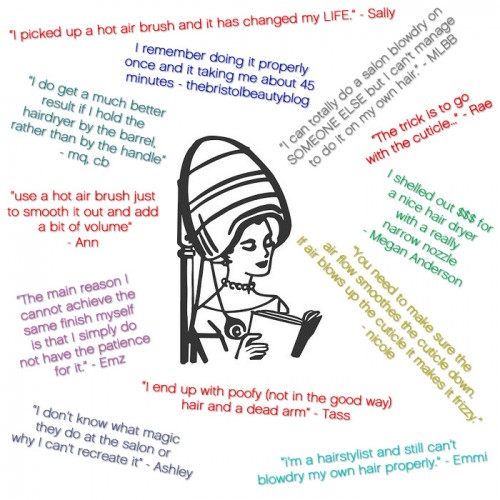 "I picked up a hot air brush and it has changed my LIFE." - Sally
I remember doing it properly
once and it taking me about 45
minutes - thebristolbeautyblog
"I can totally do a salon blowdry on
SOMEONE ELSE but I can't manage
to do it on my own hair." - MLBB
"I do get a much better
result if I hold the
hairdryer by the barrel,
rather than by the handle"
- mq, cb
"The trick is to go
with the cuticle..." - Rae
"use a hot air brush just
to smooth it out and add
a bit of volume"
- Ann
I shelled out $$$ for
a nice hair dryer
with a really
narrow nozzle
- Megan Anderson
"You need to make sure the
air flow smoothes the cuticle down.
If air blows up the cuticle it makes it frizzy."
- nicole
"The main reason I
cannot achieve the
same finish myself
is that I simply do
not have the patience
for it." - Emz
"I end up with poofy (not in the good way)
hair and a dead arm" - Tass
"I don't know what magic
they do at the salon or
why I can't recreate it" - Ashley
"I'm a hairstylist and still can't
blowdry my own hair properly." - Emmi